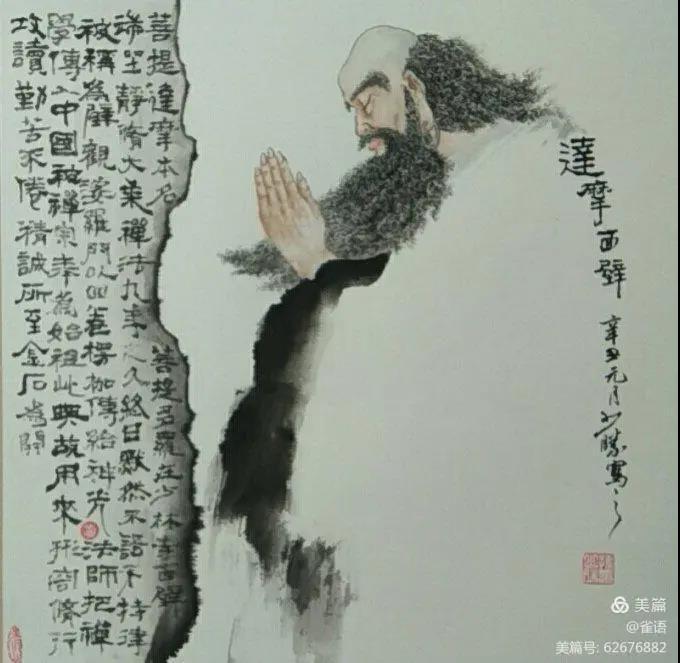 達摩面壁
辛丑元月
寫之
菩提達摩本名菩提多羅在少林寺面壁
端坐靜脩大乘禪法九年之久終日默然不語不持律
被稱為壁觀婆羅門以四卷楞枷傳給神光法師把禪
學傳入中國被禪宗奉為始祖此典故用來形容脩行
攻讀勤苦不倦精誠所至金石為開
美篇
@雀语
美篇号: 62676882